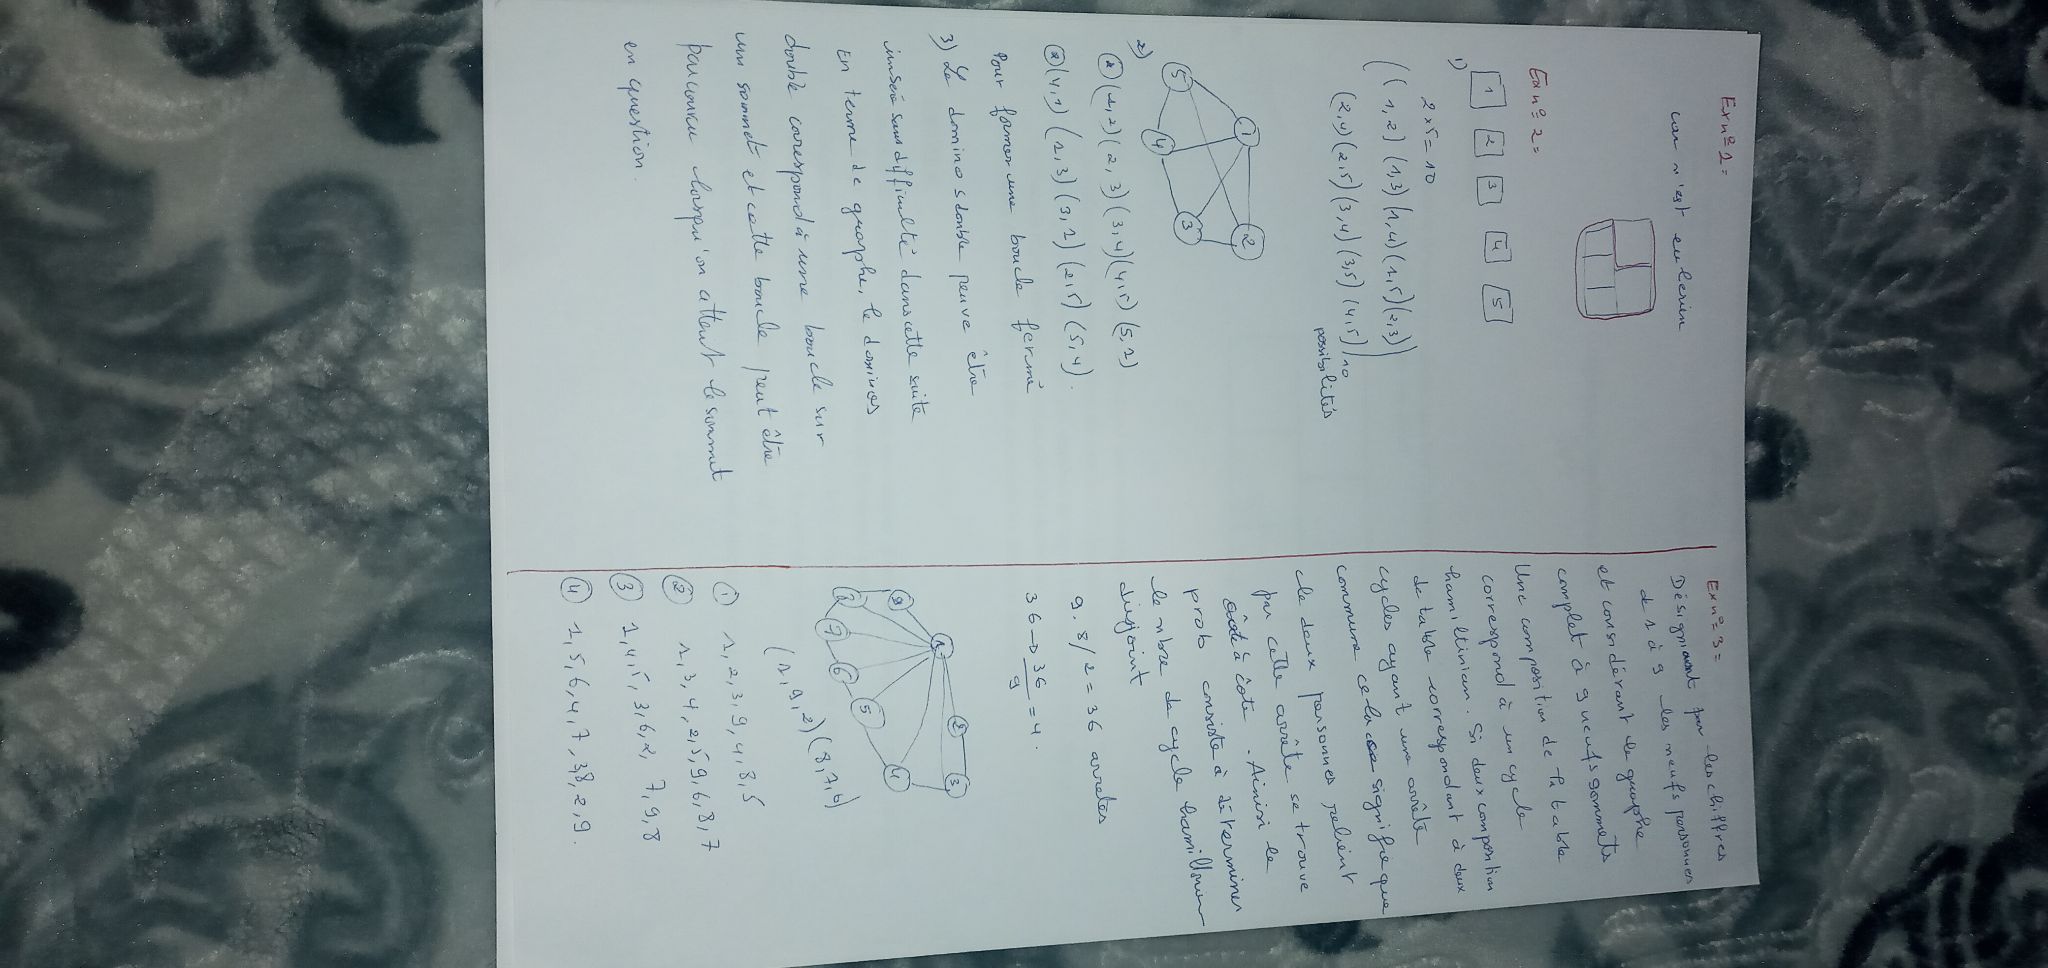 Ex nº 1 =
car n'est eulerien
Ex nº 2 =
1 2 3 4 5
1)
2 x 5 = 10
(1,2) (1,3) (1,4) (1,5) (2,3)
(2,4) (2,5) (3,4) (3,5) (4,5) 10
possibilités
1 2
5 3
4
2)
① (1,2) (2,3) (3,4) (4,5) (5,1)
② (4,1) (1,3) (3,2) (2,5) (5,4).
Pour former une boucle fermé
3) Le dominos double peuve être
inséré sans difficulté dans cette suite
En terme de graphe, le dominos
double corespond à une boucle sur
un sommet et cette boucle peut être
parcouru lorsqu'on attent le sommet
en question.
Ex nº 3 =
Désignant par les chiffres
de 1 à 9 les neufs personnes
et considérant le graphe
complet à 9 neufs sommets
Une composition de la table
correspond à un cycle
hamiltinian. Si deux composition
de table correspondant à deux
cycles ayant une arrête
commune cela signifie que
le deux personnes relient
par cette arrête se trouve
à côte. Ainisi le
prob consiste à déterminer
le nbre de cycle
disjoint
9.8/2 = 36 arretes
36 → 36/9 = 4.
1 2 3
9 4
8 7 6 5
(1,9,2) (8,7,6)
① 1,2,3,9,4,8,5
② 1,3,4,2,5,9,6,8,7
③ 1,4,5,3,6,2, 7,9,8
④ 1,5,6,4,7,3,8,2,9.